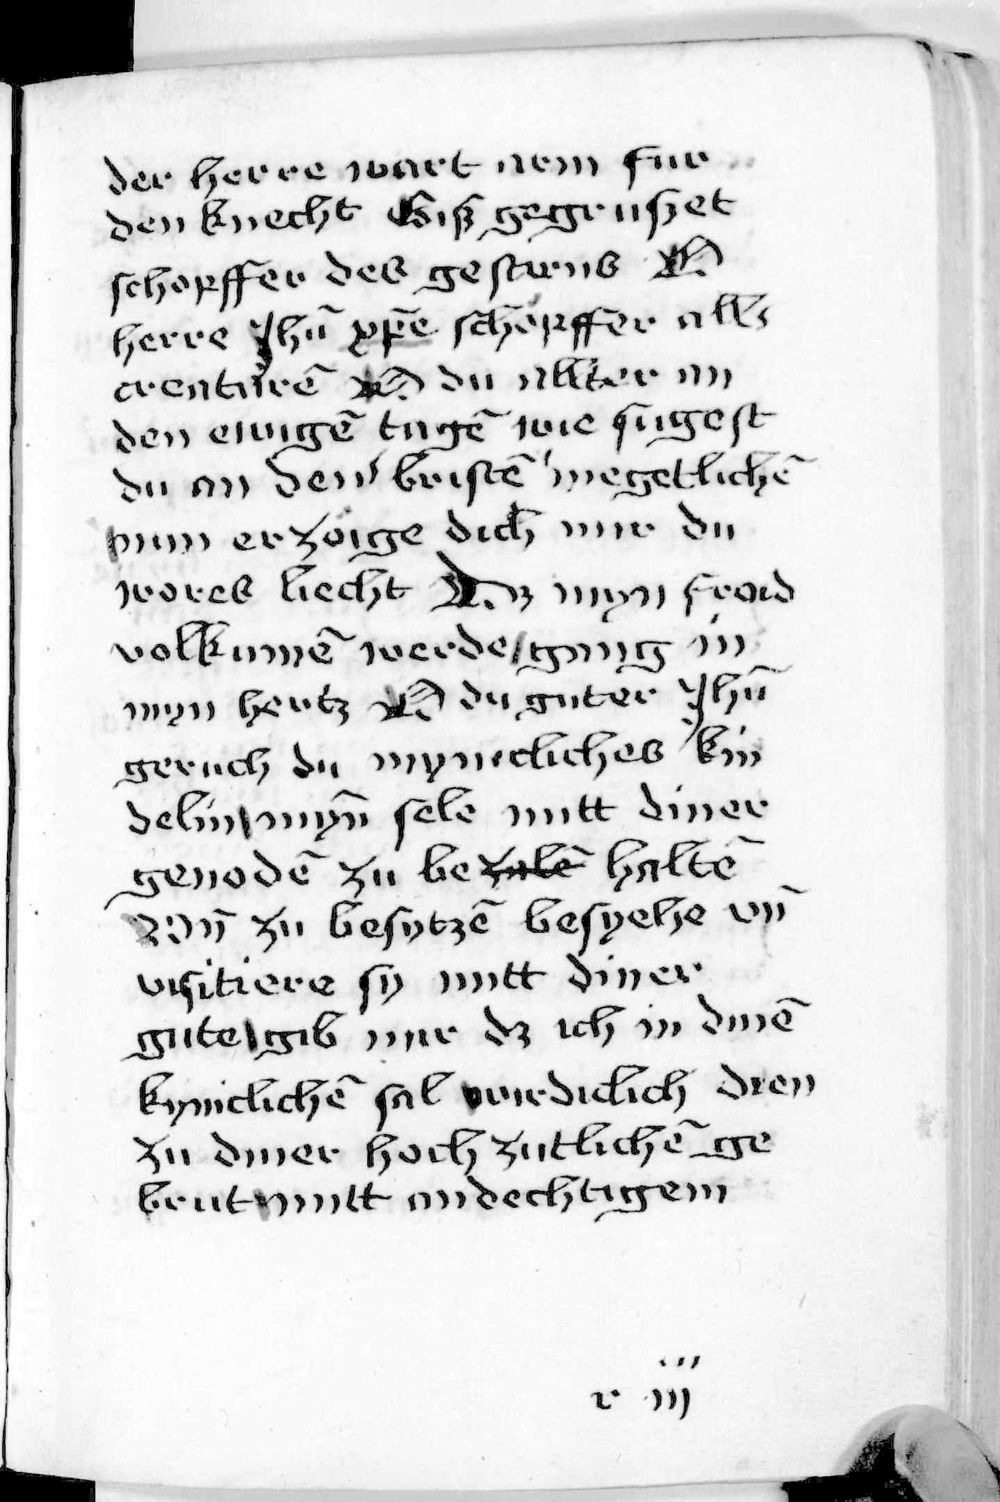 der herre wart arm fur
den knecht Biß gegrußet
schopffer des gestirns O
herre Jhū xp̄e schöpffer allʒ
creaturē O du allter an
den ewigē tagē wie sugest
du an den bristē megetlichē
nun erzöige dich mir du
wores liecht Dz myn froid
volkumē werde / gang in
myn hertz O du guter Jhū
geruch du myneclichės kin
delin myn̄ sele mitt diner
genodē zu be zalē haltē
Vn̄ zu besytzē besyehe vn̄
visitiere sy mitt diner
gute gib mir dz ich in dinē
kyniclichē sal wirdiclich dien
zu diner hoch zitlichē ge
brut mitt andechtigem
r iij